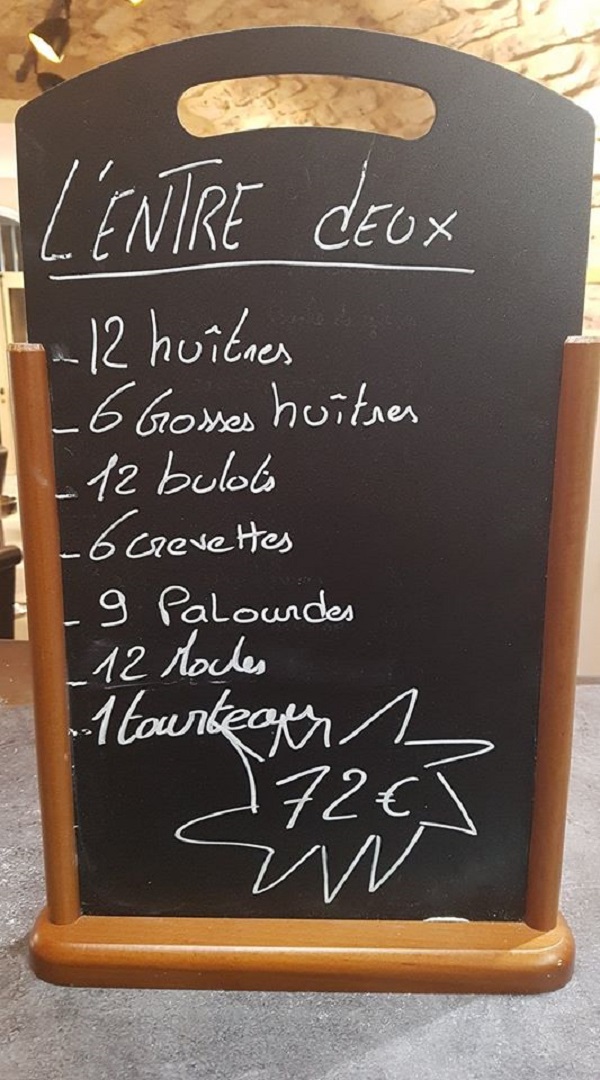 L'ENTRE dEUX
- 12 huîtres
- 6 Grosses huîtres
- 12 bulots
- 6 crevettes
- 9 Palourdes
- 12 Moules
- 1 tourteau
72€